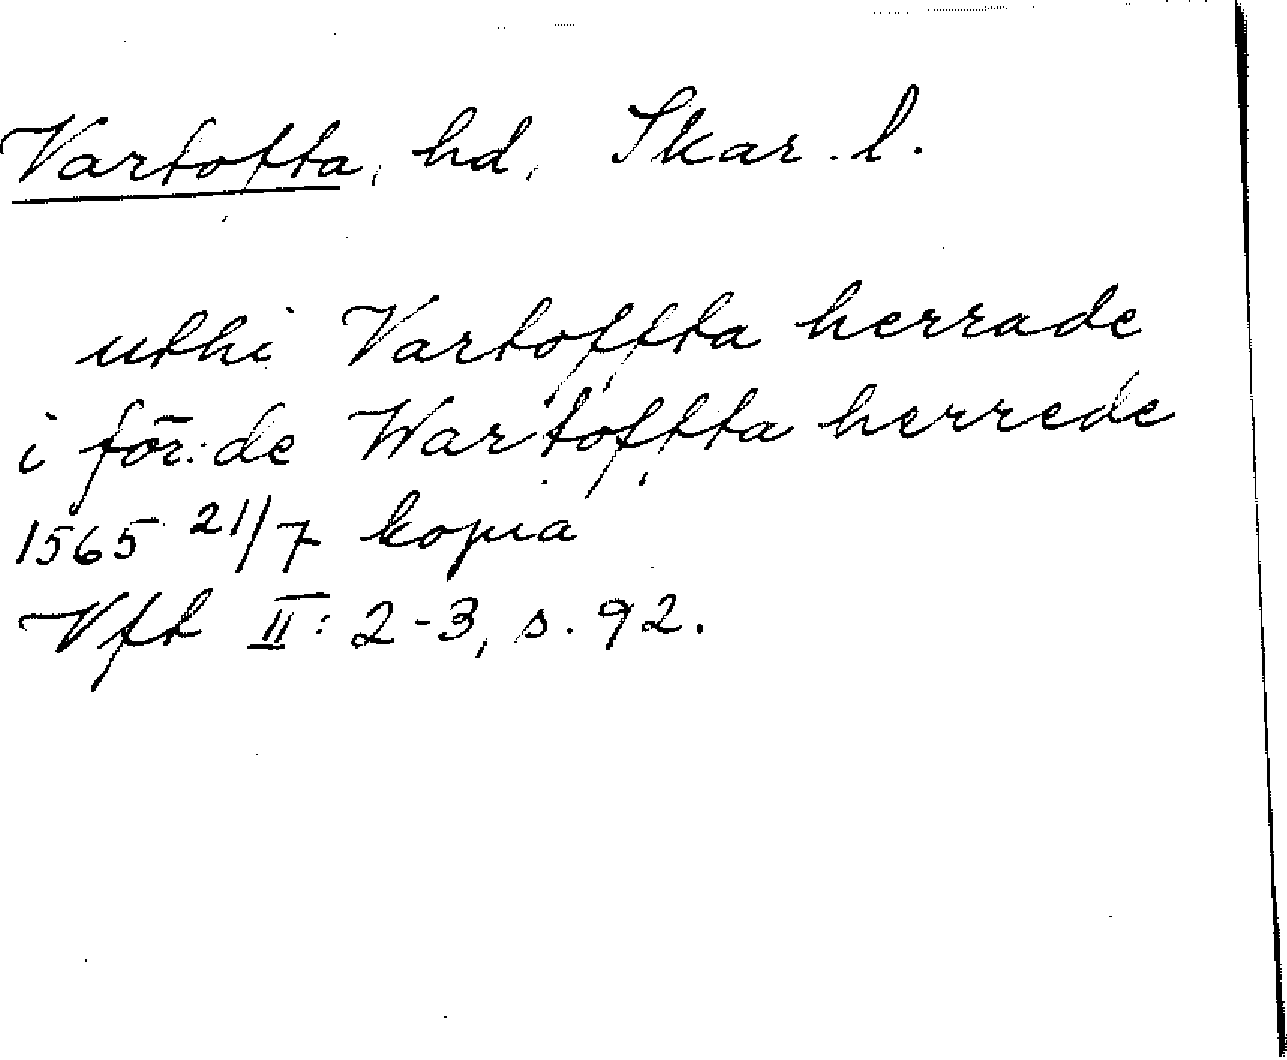 Vartofta, hd, Skar. l.
uthi Vartoffta herrade
i för:de Wartoftta herrede
1565 21/7 kopia
Vft II: 2-3, s. 92.